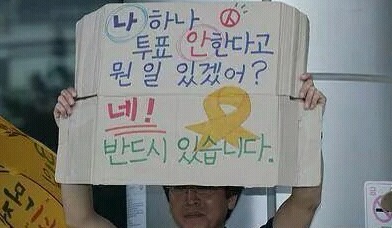 나 하나
투표 안한다고
뭔 일 있겠어?
네!
반드시 있습니다.